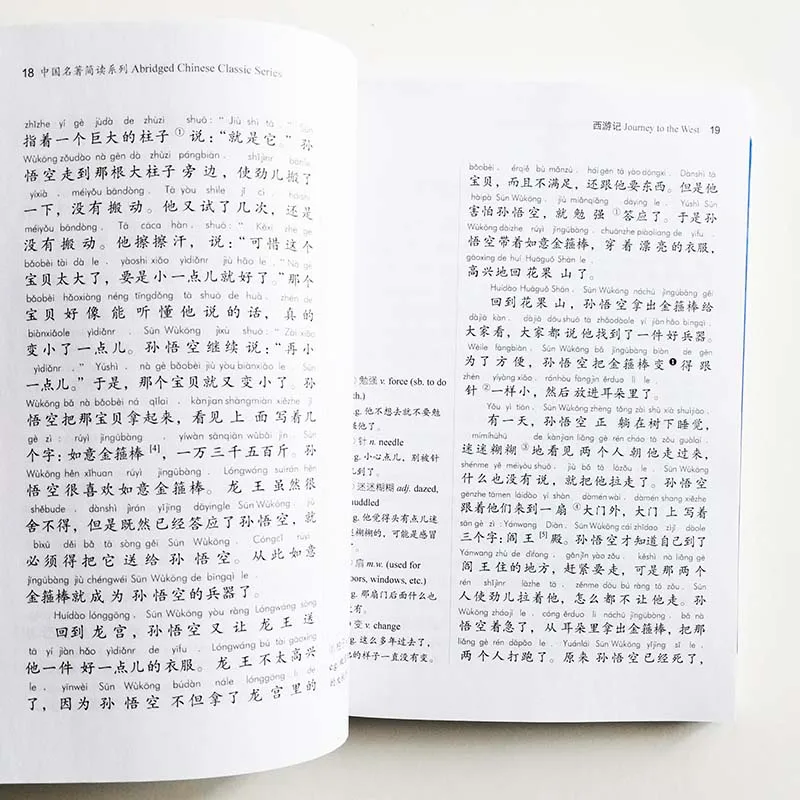 18 中国名著简读系列 Abridged Chinese Classic Series
zhǐzhe yí gè jùdà de zhùzi shuō: “Jiù shì tā.” Sūn
指着一个巨大的柱子①说：“就是它。”孙
Wùkōng zǒudào nà gēn dà zhùzi pángbiān, shǐjìnr bānle
悟空走到那根大柱子旁边，使劲儿搬了
yíxià, méiyǒu bāndòng. Tā yòu shìle jǐ cì, háishi
一下，没有搬动。他又试了几次，还是
méiyǒu bāndòng. Tā cāca hàn, shuō: “Kěxī zhè ge
没有搬动。他擦擦汗，说：“可惜这个
bǎobèi tài dà le, yàoshi xiǎo yìdiǎnr jiù hǎo le.” Nà ge
宝贝太大了，要是小一点儿就好了。”那个
bǎobèi hǎoxiàng néng tīngdǒng tā shuō de huà, zhēn de
宝贝好像能听懂他说的话，真的
biànxiǎole yìdiǎnr. Sūn Wùkōng jìxù shuō: “Zài xiǎo
变小了一点儿。孙悟空继续说：“再小
yìdiǎnr.” Yúshì, nà gè bǎobèi jiù yòu biànxiǎo le. Sūn
一点儿。”于是，那个宝贝就又变小了。孙
Wùkōng bǎ nà bǎobèi ná qǐlai, kànjiàn shàngmian xiězhe jǐ
悟空把那宝贝拿起来，看见上面写着几
gè zì: rúyì jīngūbàng, yíwàn sānqiān wǔbǎi jīn. Sūn
个字：如意金箍棒[4]，一万三千五百斤。孙
Wùkōng hěn xǐhuan rúyì jīngūbàng. Lóngwáng suīrán hěn
悟空很喜欢如意金箍棒。龙王虽然很
shěbude, dànshì jìrán yǐjīng dāyìngle Sūn Wùkōng, jiù
舍不得，但是既然已经答应了孙悟空，就
bìxū děi bǎ tā sòng gěi Sūn Wùkōng. Cóngcǐ rúyì
必须得把它送给孙悟空。从此如意
jīngūbàng jiù chéngwéi Sūn Wùkōng de bīngqì le.
金箍棒就成为孙悟空的兵器了。
Huídào lónggōng, Sūn Wùkōng yòu ràng Lóngwáng sòng
回到龙宫，孙悟空又让龙王送
tā yí jiàn hǎo yìdiǎnr de yīfu. Lóngwáng bú tài gāoxìng
他一件好一点儿的衣服。龙王不太高兴
le, yīnwèi Sūn Wùkōng búdàn nále lónggōng li de
了，因为孙悟空不但拿了龙宫里的
西游记 Journey to the West 19
bǎobèi, érqiě bù mǎnzú, hái gēn tā yào dōngxi. Dànshì tā
宝贝，而且不满足，还跟他要东西。但是他
hàipà Sūn Wùkōng, jiù miǎnqiǎng dāying le. Yúshì Sūn
害怕孙悟空，就勉强①答应了。于是孙
Wùkōng dàizhe rúyì jīngūbàng, chuānzhe piàoliang de yīfu,
悟空带着如意金箍棒，穿着漂亮的衣服，
gāoxìng de huí Huāguǒ Shān le.
高兴地回花果山了。
Huídào Huāguǒ Shān, Sūn Wùkōng náchū jīngūbàng gěi
回到花果山，孙悟空拿出金箍棒给
dàjiā kàn, dàjiā dōu shuō tā zhǎodàole yí jiàn hǎo bīngqì.
大家看，大家都说他找到了一件好兵器。
Wèile fāngbiàn, Sūn Wùkōng bǎ jīngūbàng biàn de gēn
为了方便，孙悟空把金箍棒变❶得跟
zhēn yíyàng xiǎo, ránhòu fàngjìn ěrduo li le.
针②一样小，然后放进耳朵里了。
Yǒu yì tiān, Sūn Wùkōng zhèng tǎng zài shù xià shuìjiào,
有一天，孙悟空正躺在树下睡觉，
mímíhúhú de kànjiàn liǎng gè rén cháo tā zǒu guòlai,
迷迷糊糊③地看见两个人朝他走过来，
shénme yě méiyǒu shuō, jiù bǎ tā lāzǒu le. Sūn Wùkōng
什么也没有说，就把他拉走了。孙悟空
gēnzhe tāmen láidào yí shàn dàmén wài, dàmén shang xiězhe
跟着他们来到一扇④大门外，大门上写着
sān gè zì: Yánwang Diàn. Sūn Wùkōng cái zhīdao zìjǐ dàole
三个字：阎王[5]殿。孙悟空才知道自己到了
Yánwang zhù de dìfang, gǎnjǐn yào zǒu, kěshì nà liǎng gè
阎王住的地方，赶紧要走，可是那两个
rén shǐjìnr lāzhe tā, zěnme dōu bú ràng tā zǒu. Sūn
人使劲儿拉着他，怎么都不让他走。孙
Wùkōng zháojí le, cóng ěrduo li náchū jīngūbàng, bǎ nà
悟空着急了，从耳朵里拿出金箍棒，把那
liǎng gè rén dǎpǎo le. Yuánlái Sūn Wùkōng yǐjīng sǐ le,
两个人打跑了。原来孙悟空已经死了，
① 勉强 v. force (sb. to do
th.)
g. 他不想去就不要勉
他了。
② 针 n. needle
g. 小心点儿，别被针
儿到了。
③ 迷迷糊糊 adj. dazed,
uddled
g. 他觉得头有点儿迷
迷糊糊的，可能是感冒
了。
④ 扇 m.w. (used for
oors, windows, etc.)
g. 那扇门后面什么也
有。
❶ 变 v. change
g. 这么多年过去了，
的样子一直没有变。